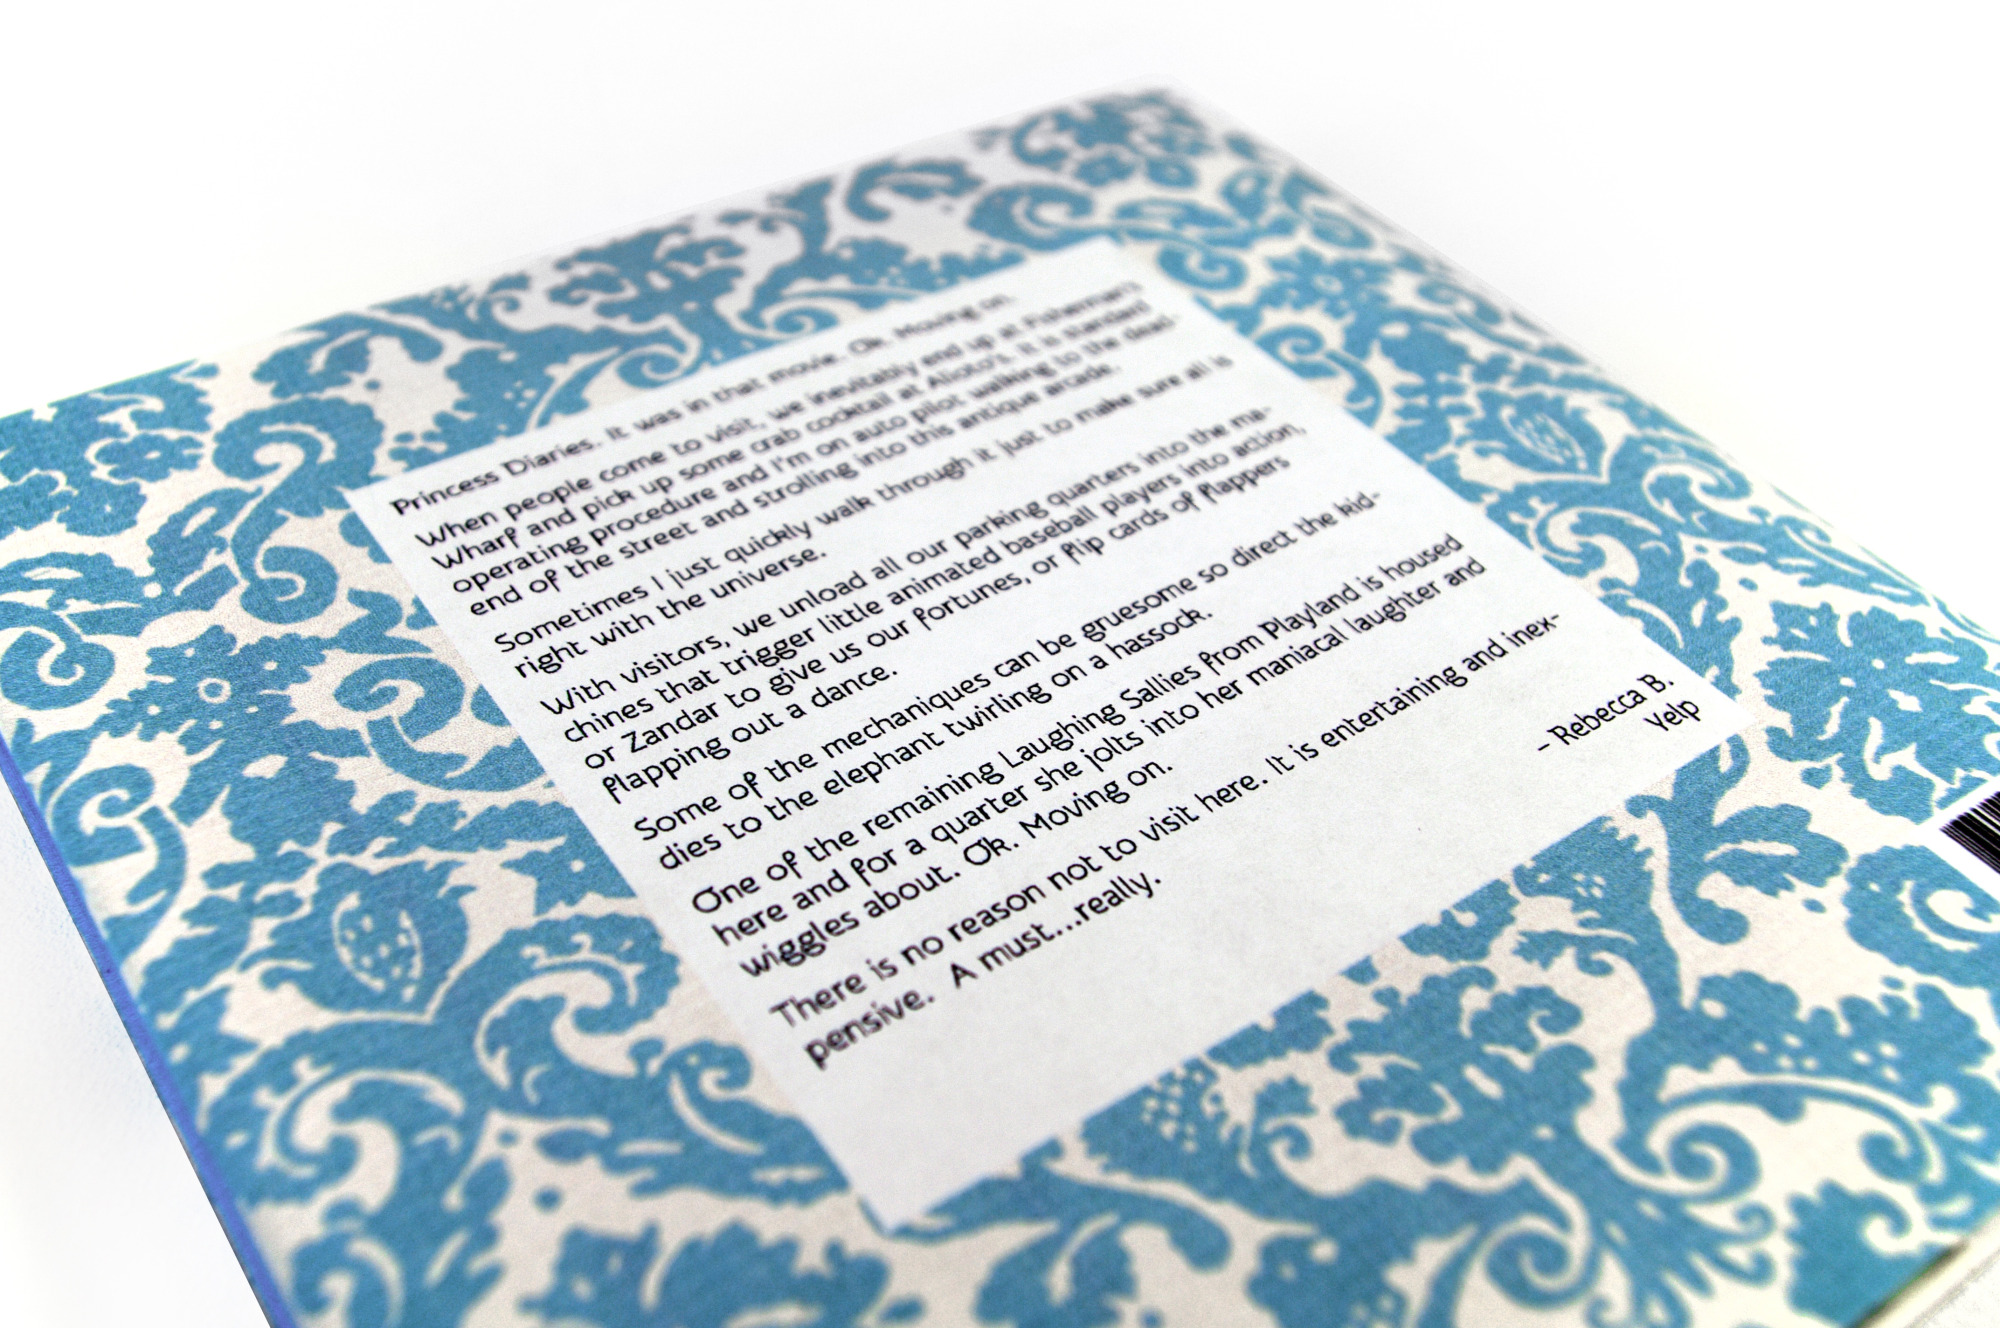 Princess Diaries. It was in that movie. Ok. Moving on.
When people come to visit, we inevitably end up at Fisherman's
Wharf and pick up some crab cocktail at Alioto's. It is standard
operating procedure and I'm on auto pilot walking to the dead-
end of the street and strolling into this antique arcade.
Sometimes I just quickly walk through it just to make sure all is
right with the universe.
With visitors, we unload all our parking quarters into the ma-
chines that trigger little animated baseball players into action,
or Zandar to give us our fortunes, or flip cards of flappers
flapping out a dance.
Some of the mechaniques can be gruesome so direct the kid-
dies to the elephant twirling on a hassock.
One of the remaining Laughing Sallies from Playland is housed
here and for a quarter she jolts into her maniacal laughter and
wiggles about. Ok. Moving on.
There is no reason not to visit here. It is entertaining and inex-
pensive. A must...really.
- Rebecca B.
Yelp